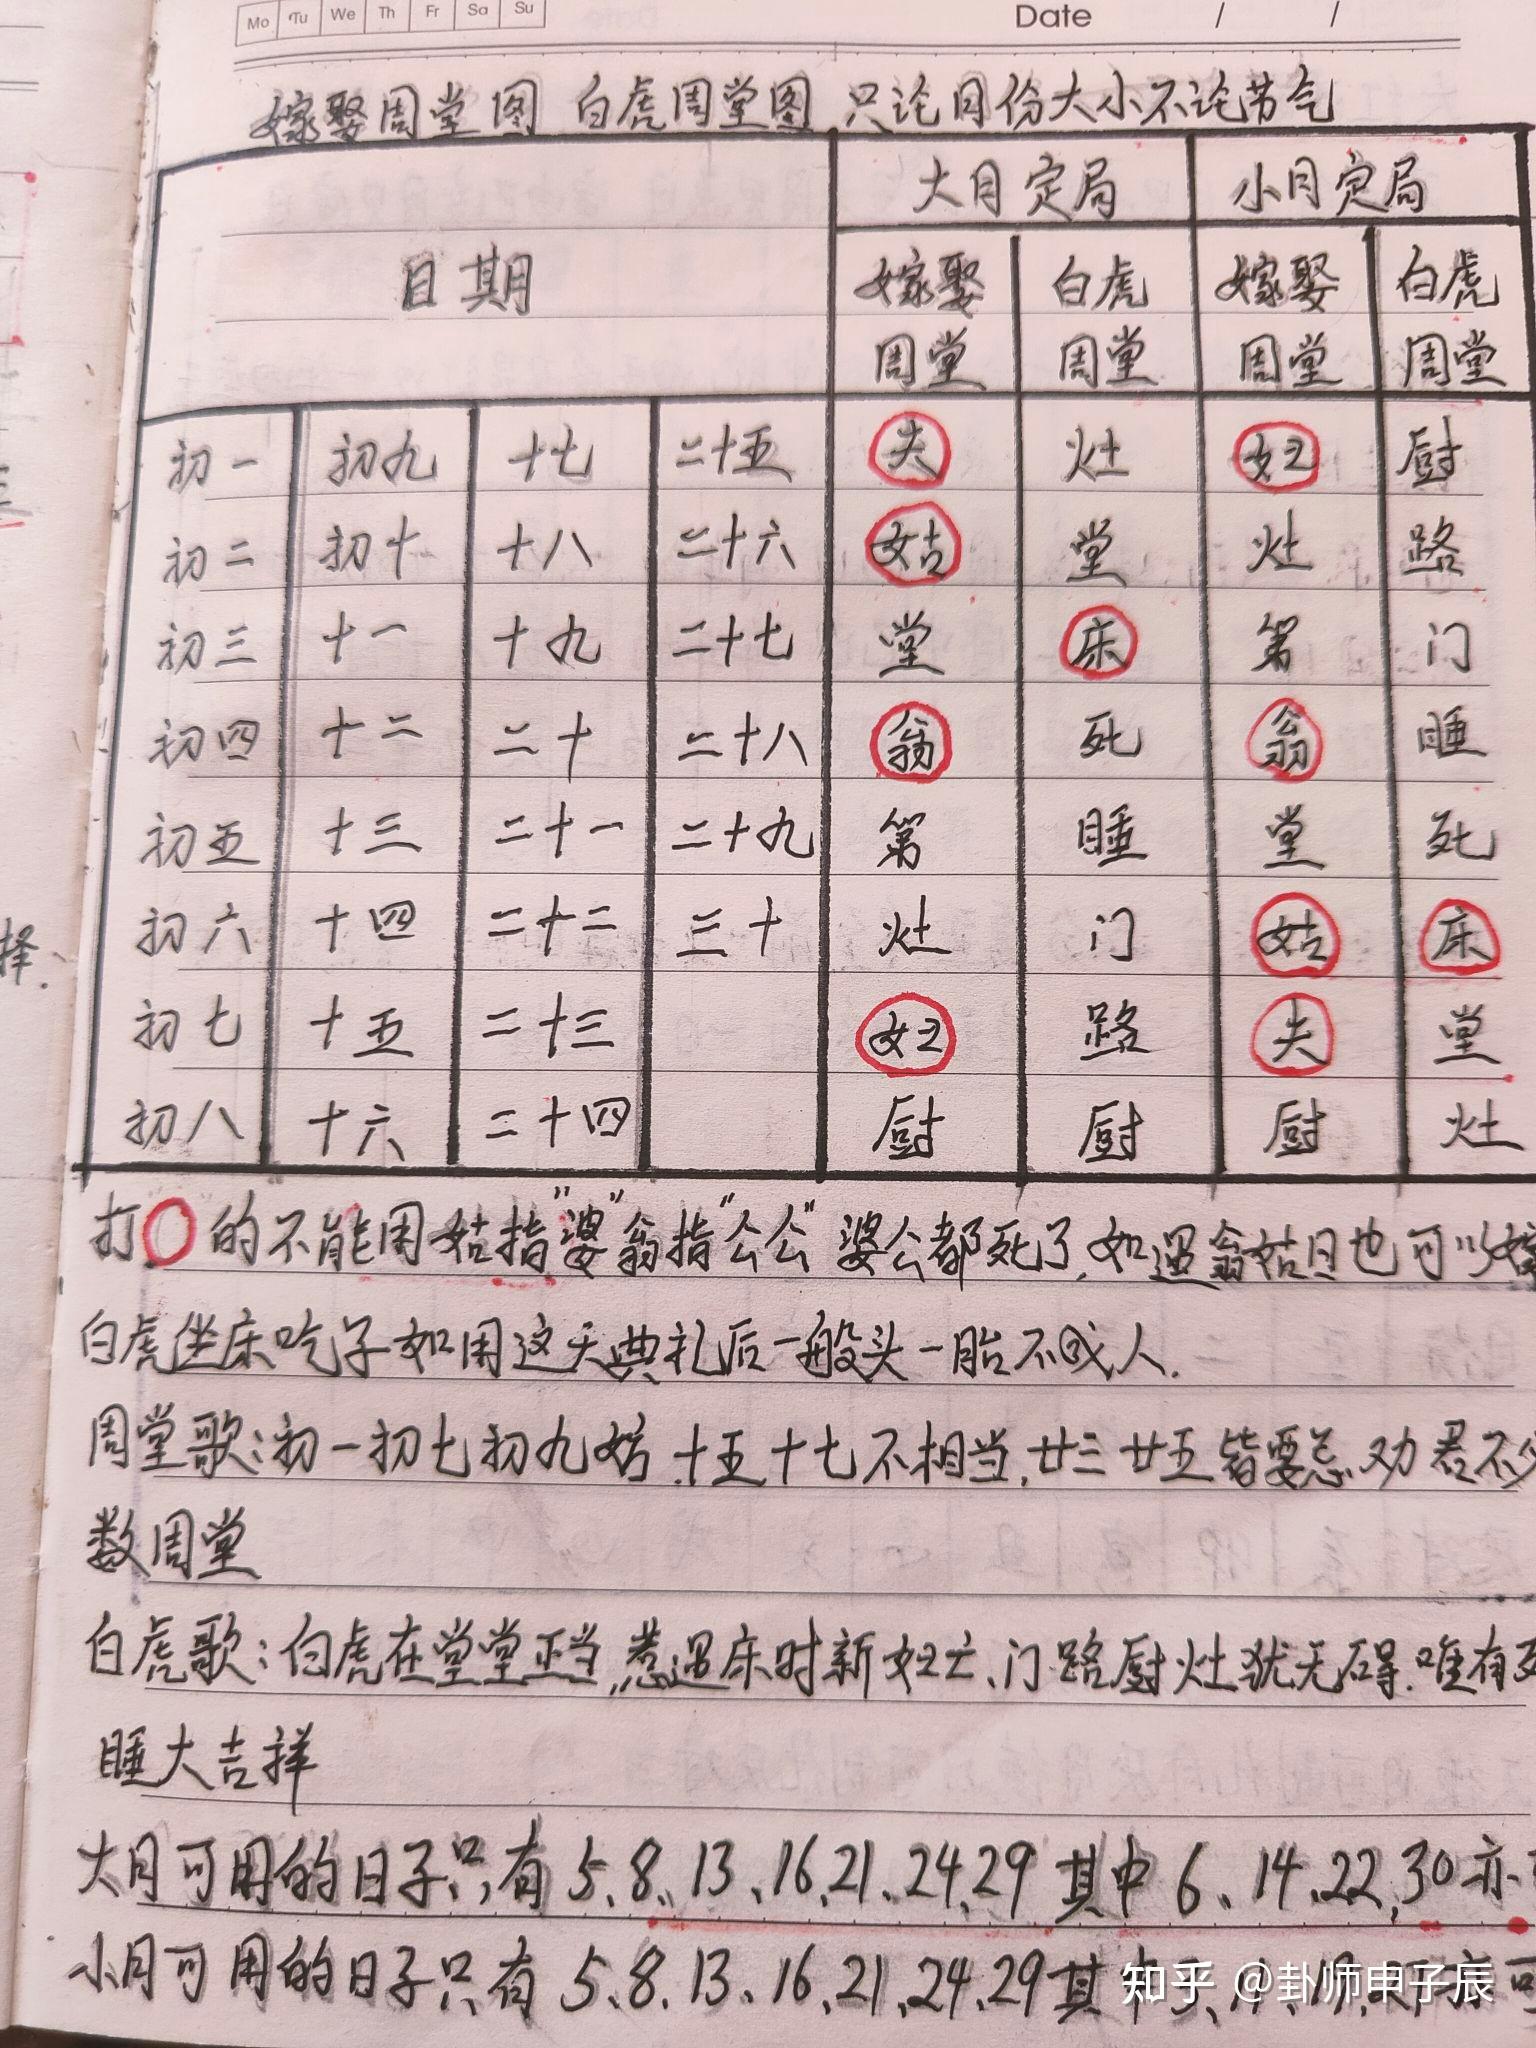 Mo Tu We Th Fr Sa Su
Date / /
嫁娶周堂图 白虎周堂图 只论月份大小不论节气
日期 大月定局 小月定局
嫁娶周堂 白虎周堂 嫁娶周堂 白虎周堂
初一 初九 十七 二十五 夫 灶 妇 厨
初二 初十 十八 二十六 姑 堂 灶 路
初三 十一 十九 二十七 堂 床 第 门
初四 十二 二十 二十八 翁 死 翁 睡
初五 十三 二十一 二十九 第 睡 堂 死
初六 十四 二十二 三十 灶 门 姑 床
初七 十五 二十三 妇 路 夫 堂
初八 十六 二十四 厨 厨 厨 灶
打○的不能用姑指"婆"翁指"公公"婆公都死了,如遇翁姑日也可以嫁
白虎坐床吃子如用这天典礼后一般头一胎不成人.
周堂歌:初一初七初九姑.十五十七不相当,廿三廿五皆要忌.劝君不
数周堂
白虎歌:白虎在堂堂正当,惹遇床时新妇亡、门路厨灶犹无碍.唯有死
睡大吉祥
大月可用的日子只有5、8、13、16、21、24、29其中6、14、22、30亦
小月可用的日子只有5、8、13、16、21、24、29其
择.
知乎 @卦师申子辰